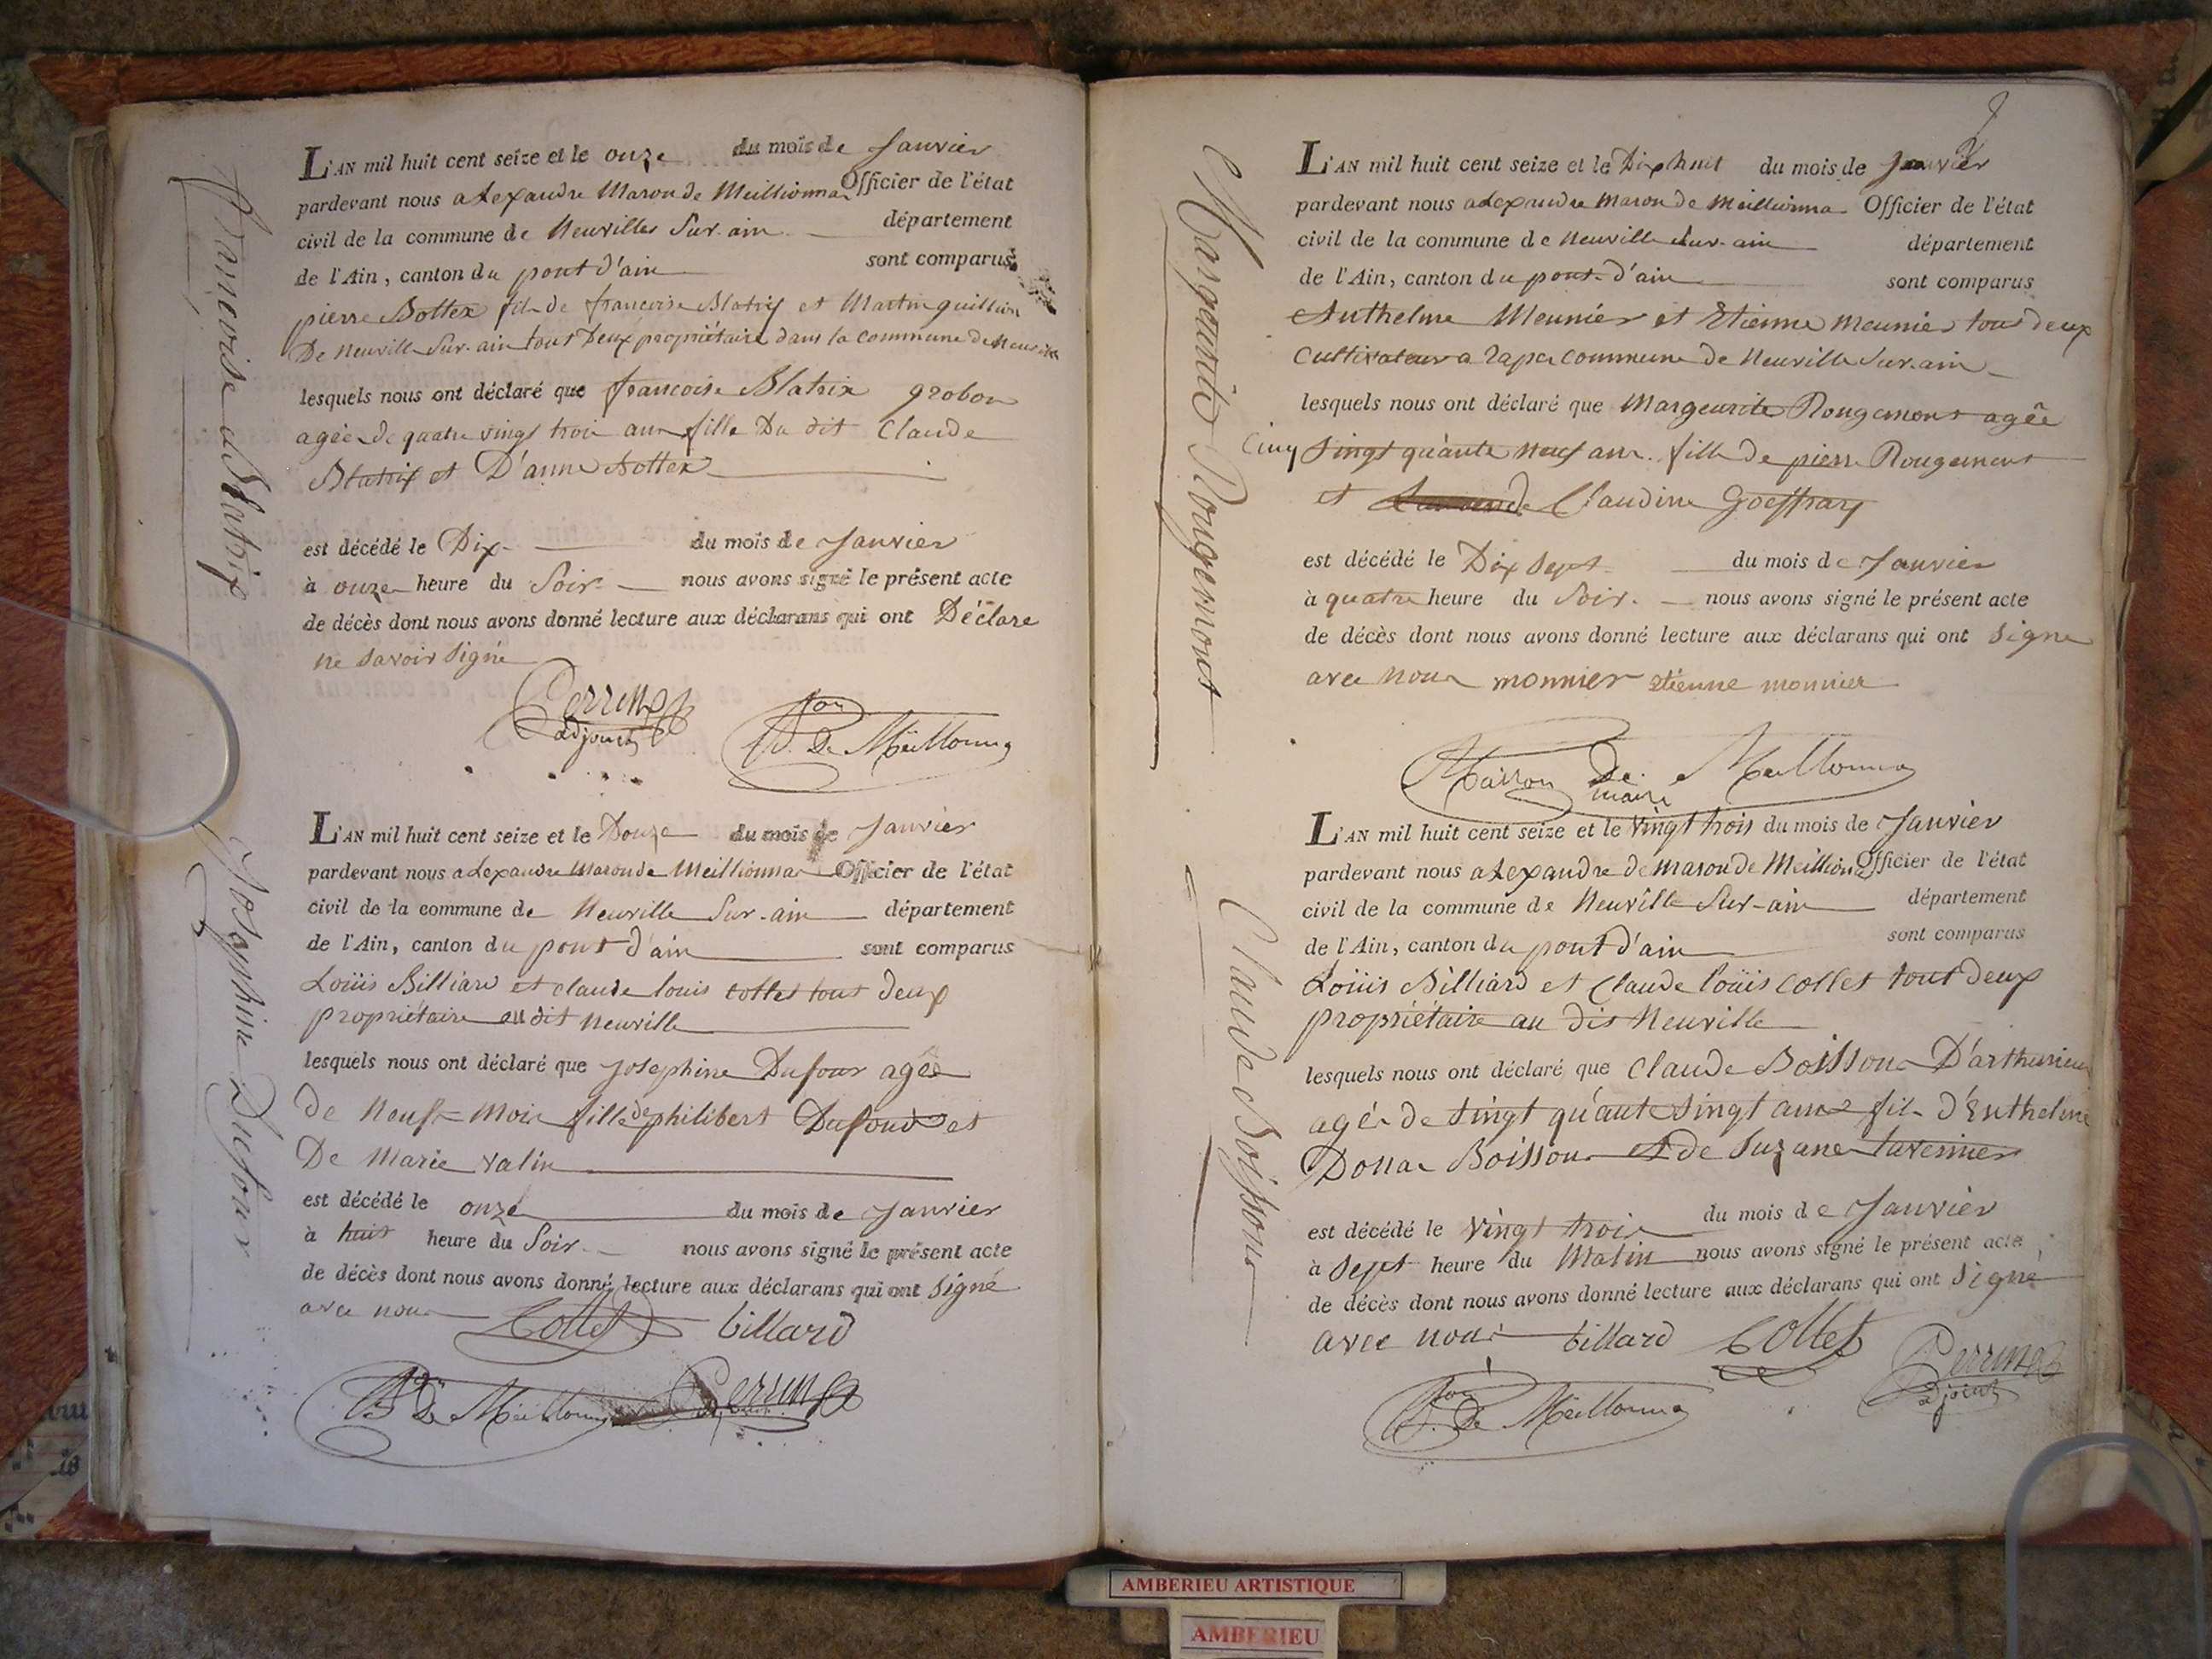 françoise Blatrix
L'AN mil huit cent seize et le onze du mois de Janvier
pardevant nous alexandre Maron de Meillionna Officier de l'état
civil de la commune de Neuvilles Sur-ain département
de l'Ain, canton du pont d'ain sont comparus
pierre Bottex fils de francoise Blatrix et Martin guillion
De Neuville Sur-ain tout Deux propriétaire dans la commune de Neuville
lesquels nous ont déclaré que francoise Blatrix grobon
agée de quatre vingt trois ans fille Du dit Claude
Blatrix et D'anne bottex
est décédé le Dix du mois de Janvier
à onze heure du Soir nous avons signé le présent acte
de décès dont nous avons donné lecture aux déclarans qui ont Déclare
ne savoir signé
Perrin
adjoint
De Meillonna
Josephine Dufour
L'AN mil huit cent seize et le Douze du mois de Janvier
pardevant nous alexandre Maron de Meillionna Officier de l'état
civil de la commune de Neuville Sur-ain département
de l'Ain, canton du pont d'ain sont comparus
Loüis Billiard et claude louis collet tout deux
propriétaire au dit Neuville
lesquels nous ont déclaré que Josephine Dufour agée
de Neuf mois fille de philibert Dufour et
De Marie Valin
est décédé le onze du mois de Janvier
à huit heure du Soir nous avons signé le présent acte
de décès dont nous avons donné lecture aux déclarans qui ont signé
avec nous Collet billard
De Meillonna Perrin
Margueritte Rougemont
L'AN mil huit cent seize et le Dix huit du mois de Janvier
pardevant nous alexandre Maron de Meillionna Officier de l'état
civil de la commune de Neuville Sur-ain département
de l'Ain, canton du pont-d'ain sont comparus
Anthelme Meunier et Etienne Meunier tout deux
Cultivateur a Rapa commune de Neuville Sur-ain
lesquels nous ont déclaré que Margeurite Rougemont agée
Cinq Singt quante neuf ans fille de pierre Rougemont
et Claudine Goeffray
est décédé le Dix Sept du mois de Janvier
à quatre heure du Soir nous avons signé le présent acte
de décès dont nous avons donné lecture aux déclarans qui ont signe
avec nous monnier etienne monnier
Marron De Meillonna
maire
Claude Boissons
L'AN mil huit cent seize et le Vingt trois du mois de Janvier
pardevant nous alexandre de Maron de Meillionna Officier de l'état
civil de la commune de Neuville Sur-ain département
de l'Ain, canton du pont d'ain sont comparus
Loüis Billiard et Claude loüis collet tout deux
propriétaire au dit Neuville
lesquels nous ont déclaré que Claude Boisson D'arthurieux
agé de Singt qu'ante Singt ans fils d'Enthelme
Donna Boisson et de Suzane tavernier
est décédé le Vingt trois du mois de Janvier
à Sept heure du Matin nous avons signé le présent acte
de décès dont nous avons donné lecture aux déclarans qui ont signe
avec nous billard Collet
Perrin
adjoint
De Meillonna
AMBERIEU ARTISTIQUE
AMBERIEU